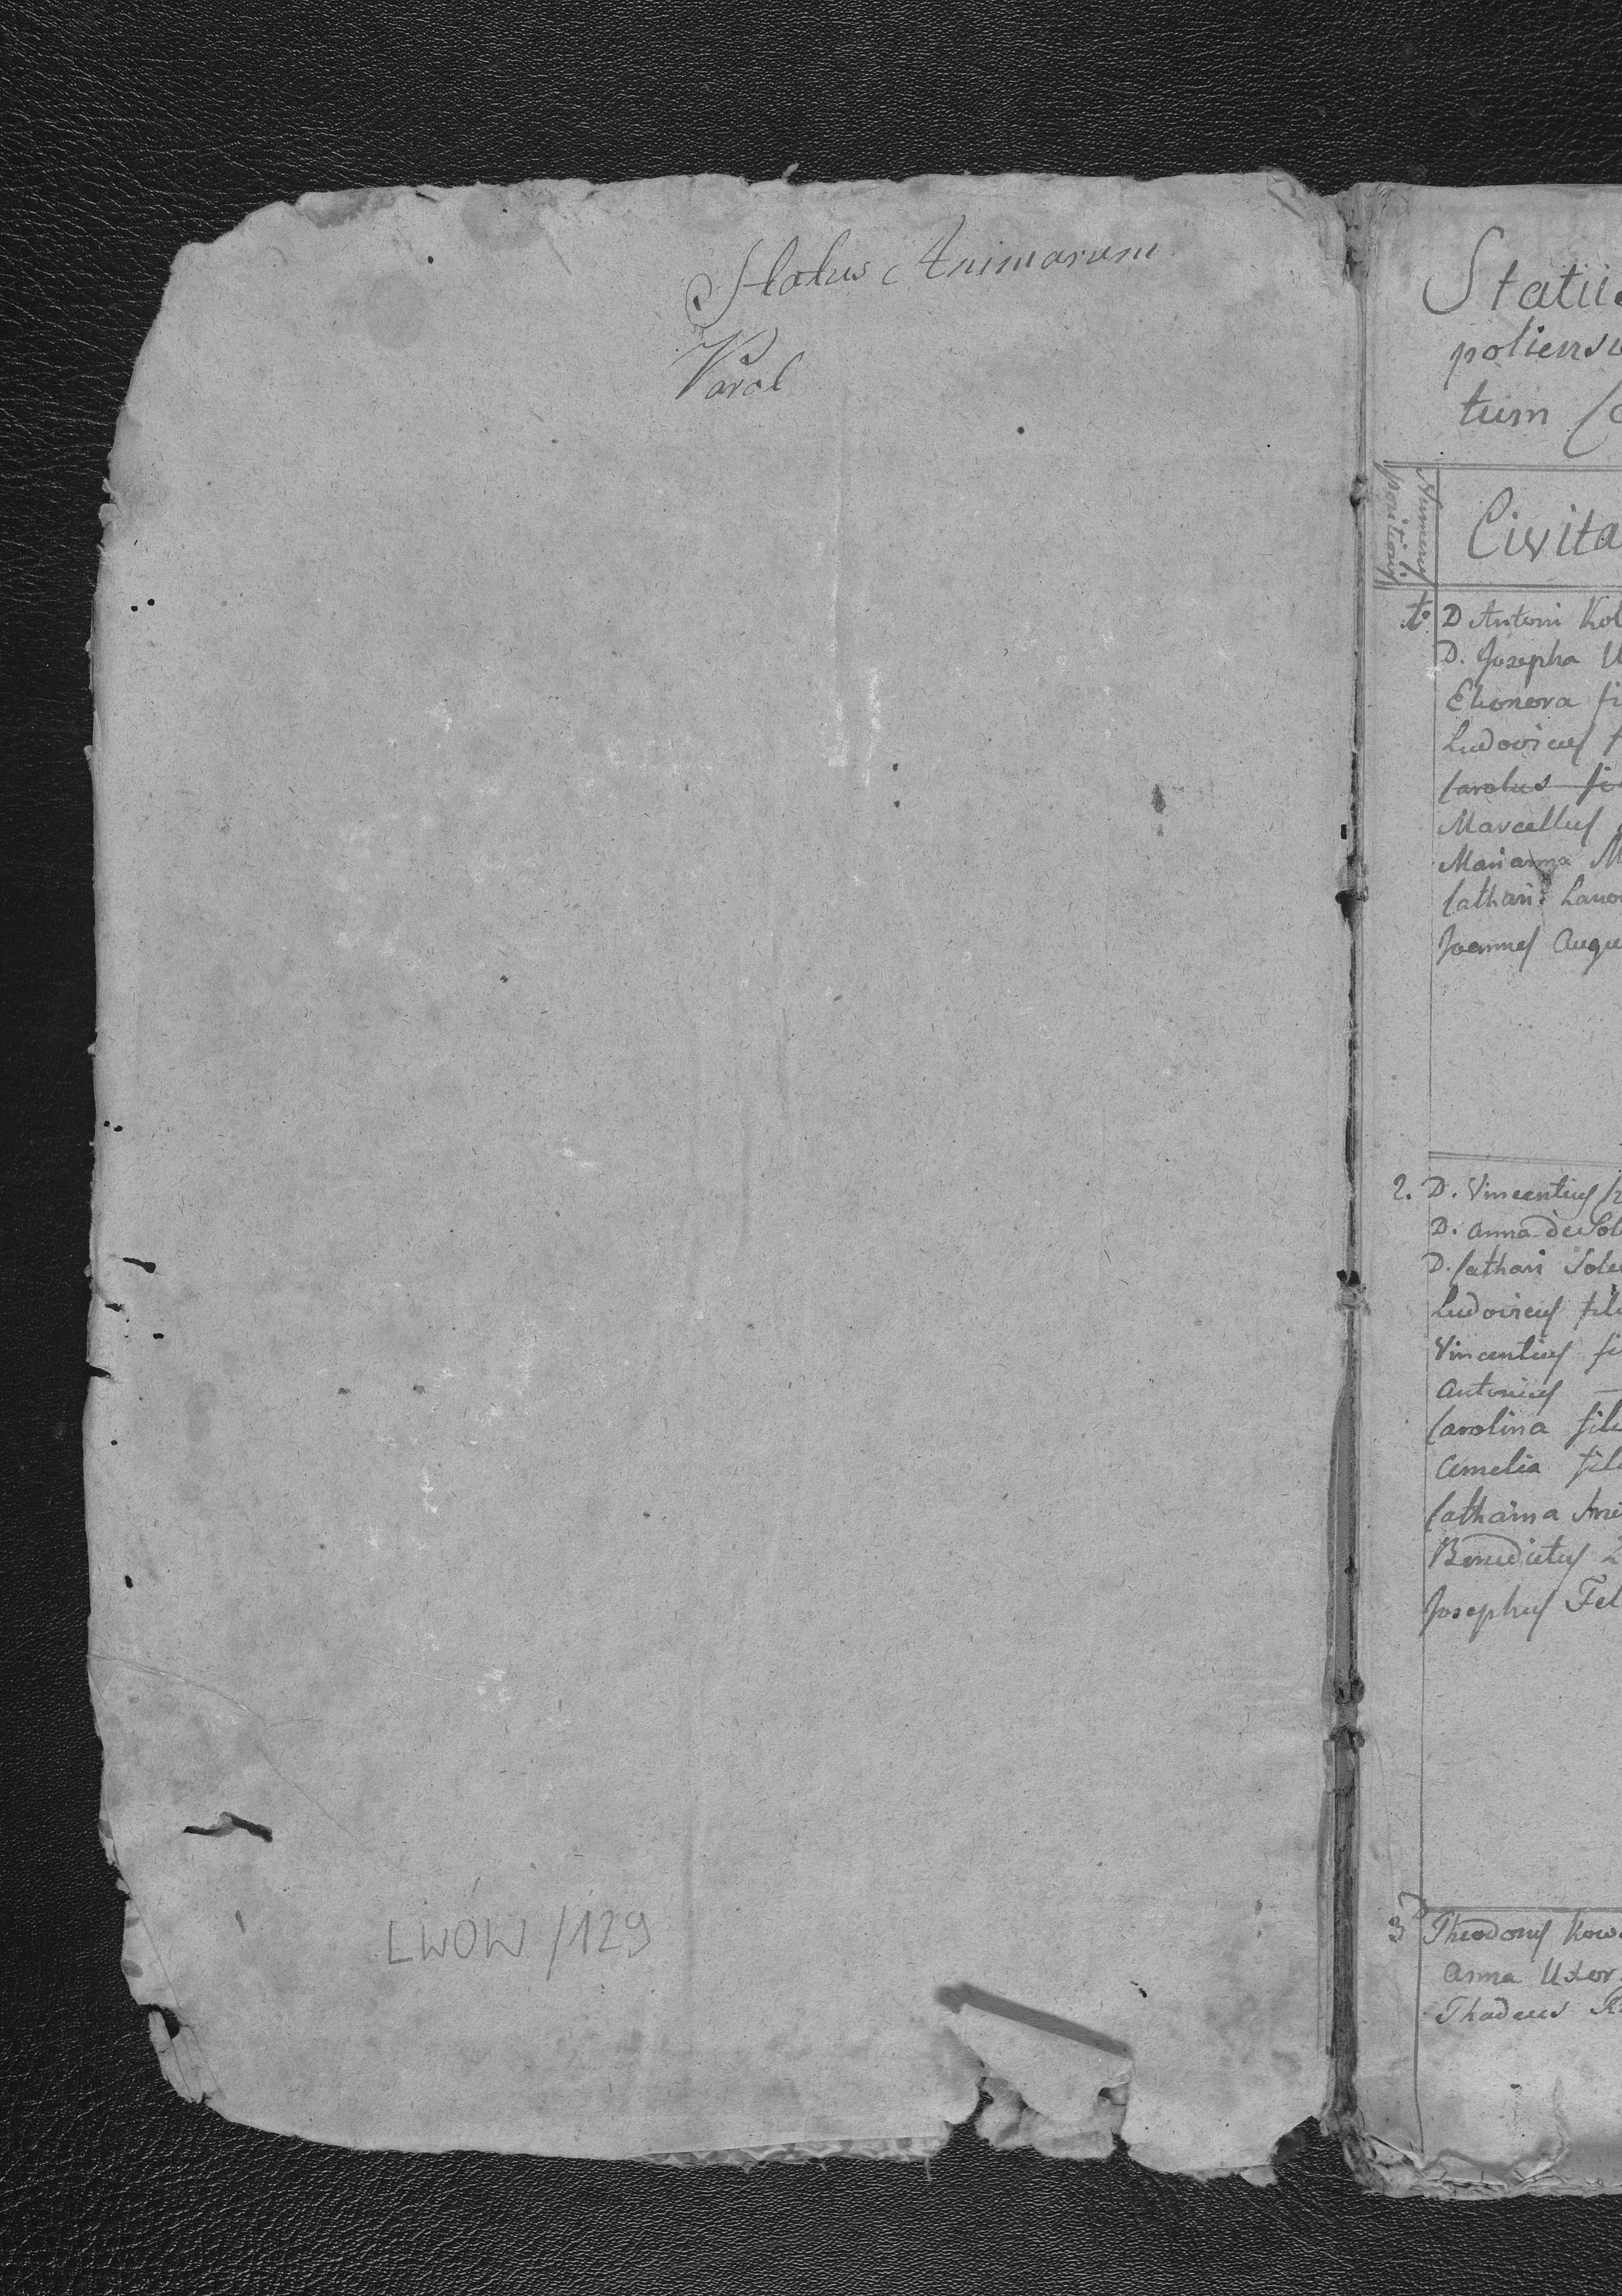 Status Animarum
Varol
LWÓW /129
Status
poliensi
tum
Numerus
positionis
Civita
1. D Antoni Kol
D. Josepha U
Eleonora fi
Ludovicus f
Carolus fi
Marcellus
Marianna M
Cathari:
Joannes Augu
2. D. Vincentius
D. Anna de Sol
D. Cathari Sole
Ludovicus fili
Vincentius fi
Antonius —
Carolina fili
Amelia fili
Catharina
Benedictus
Josephus Fel
3 Theodorus Kow
Anna Uxor
Thadeus